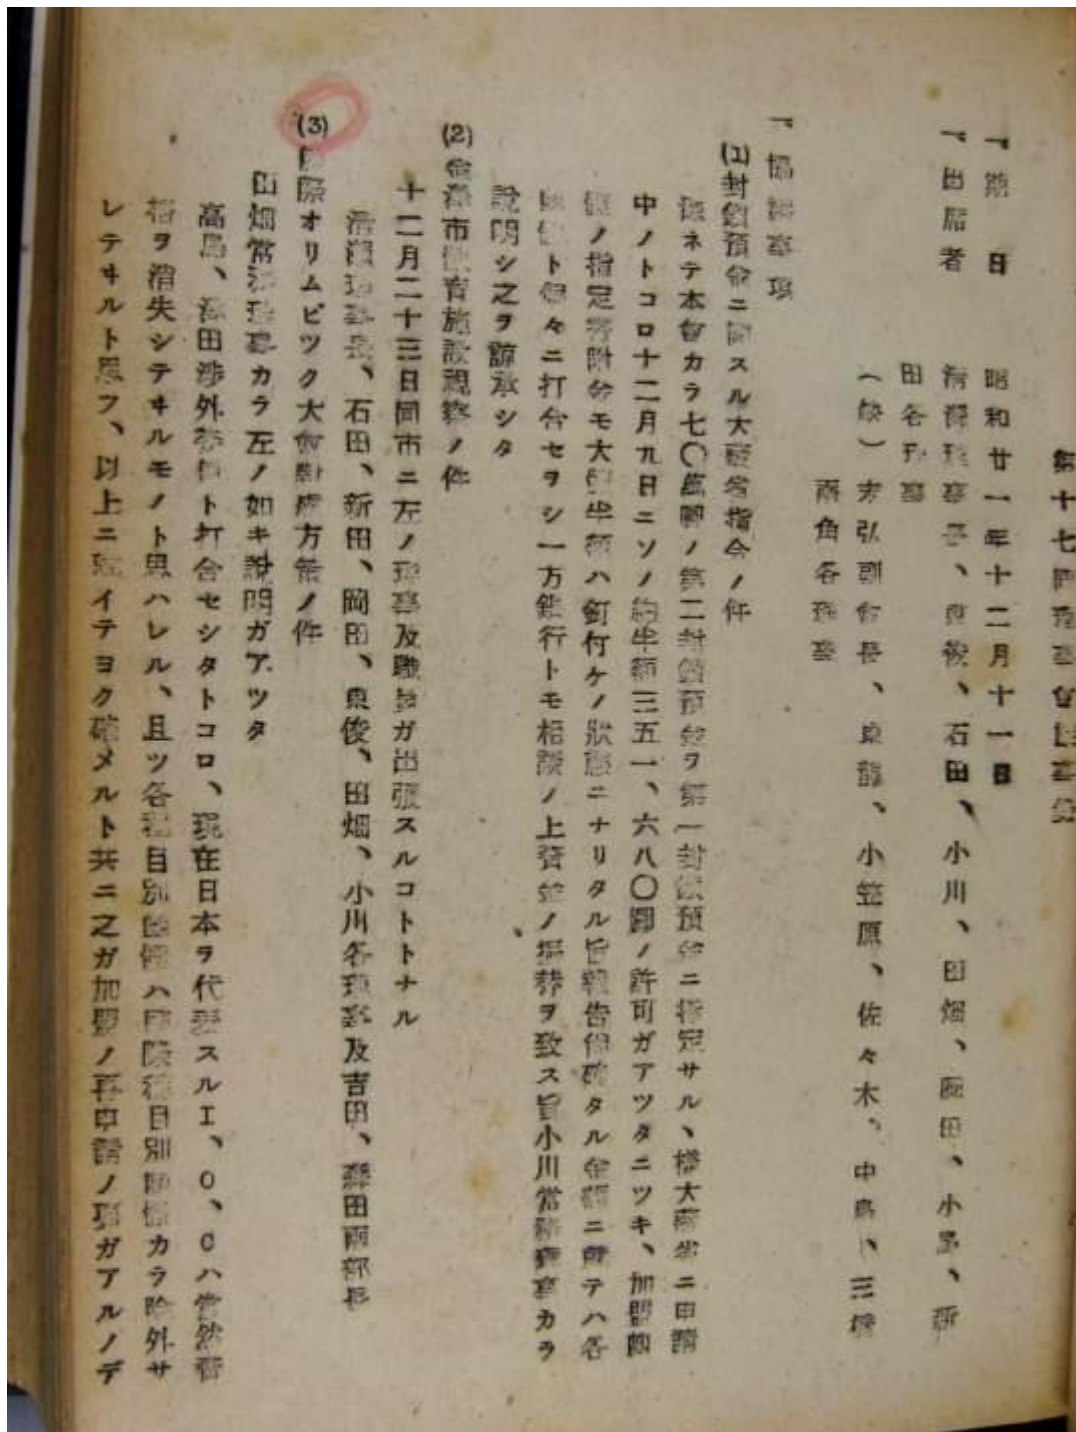 第十七回理事會議事錄
一、期日 昭和廿一年十二月十一日
一、出席者 清瀬理事長、東俊、石田、小川、田畑、岡田、小高、新
田各理事
(缺)末弘副會長、東龍、小笠原、佐々木、中島、三橋
兩角各理事
一、協議事項
(1)封鎖預金ニ關スル大藏省指令ノ件
豫ネテ本會カラ七〇萬圓ノ第二封鎖預金ヲ第一封鎖預金ニ指定サル、樣大藏省ニ申請
中ノトコロ十二月九日ニソノ約半額三五一、六八〇圓ノ許可ガアツタニツキ、加盟團
體ノ指定寄附金モ大約半額ハ釘付ケノ狀態ニナリタル旨報告 タル金額ニ就テハ各
團體ト個々ニ打合セヲシ一方銀行トモ相談ノ上資金ノ振替ヲ致ス旨小川常務理事カラ
說明シ之ヲ諒承シタ
(2)金澤市體育施設視察ノ件
十二月二十三日同市ニ左ノ理事及職員ガ出張スルコトトナル
清瀬理事長、石田、新田、岡田、東俊、田畑、小川各理事及吉田、森田兩部長
(3)國際オリムピツク大會對處方策ノ件
田畑常務理事カラ左ノ如キ說明ガアツタ
高島、澤田涉外 ト打合セシタトコロ、現在日本ヲ代表スルI、O、Cハ當然資
格ヲ消失シテヰルモノト思ハレル、且ツ各種目別團體ハ國際種目別團體カラ除外サ
レテヰルト思フ、以上ニ就イテヨク確メルト共ニ之ガ加盟ノ再申請ノ要ガアルノデ